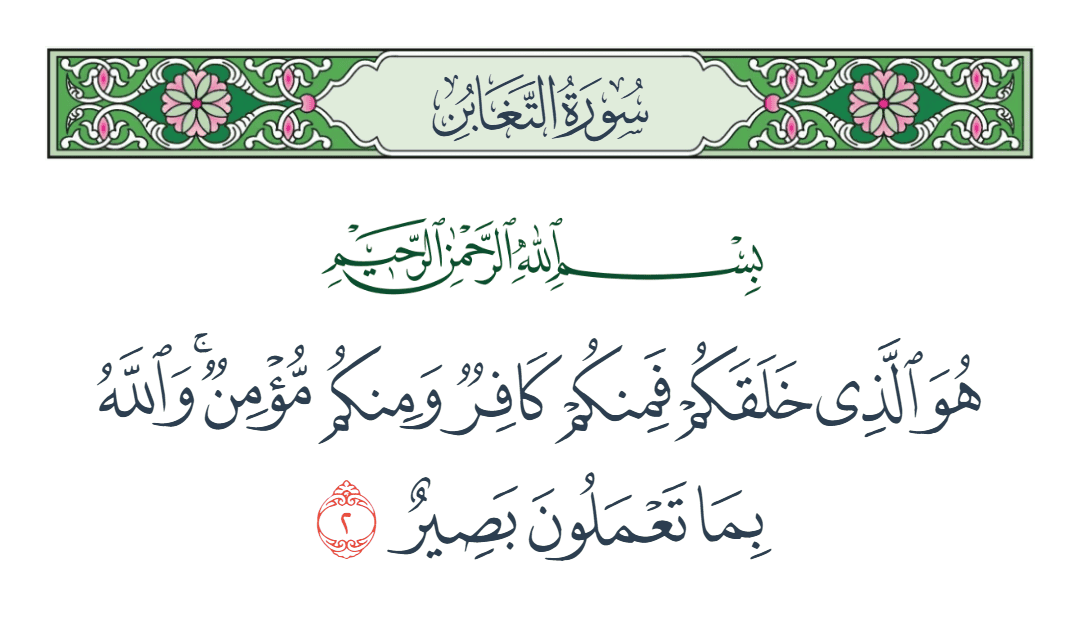 سُورَةُ التَّغَابُن
بِسْمِ ٱللَّهِ ٱلرَّحْمَٰنِ ٱلرَّحِيمِ
هُوَ ٱلَّذِى خَلَقَكُمْ فَمِنكُمْ كَافِرٌ وَمِنكُم مُّؤْمِنٌ ۚ وَٱللَّهُ
بِمَا تَعْمَلُونَ بَصِيرٌ ٢